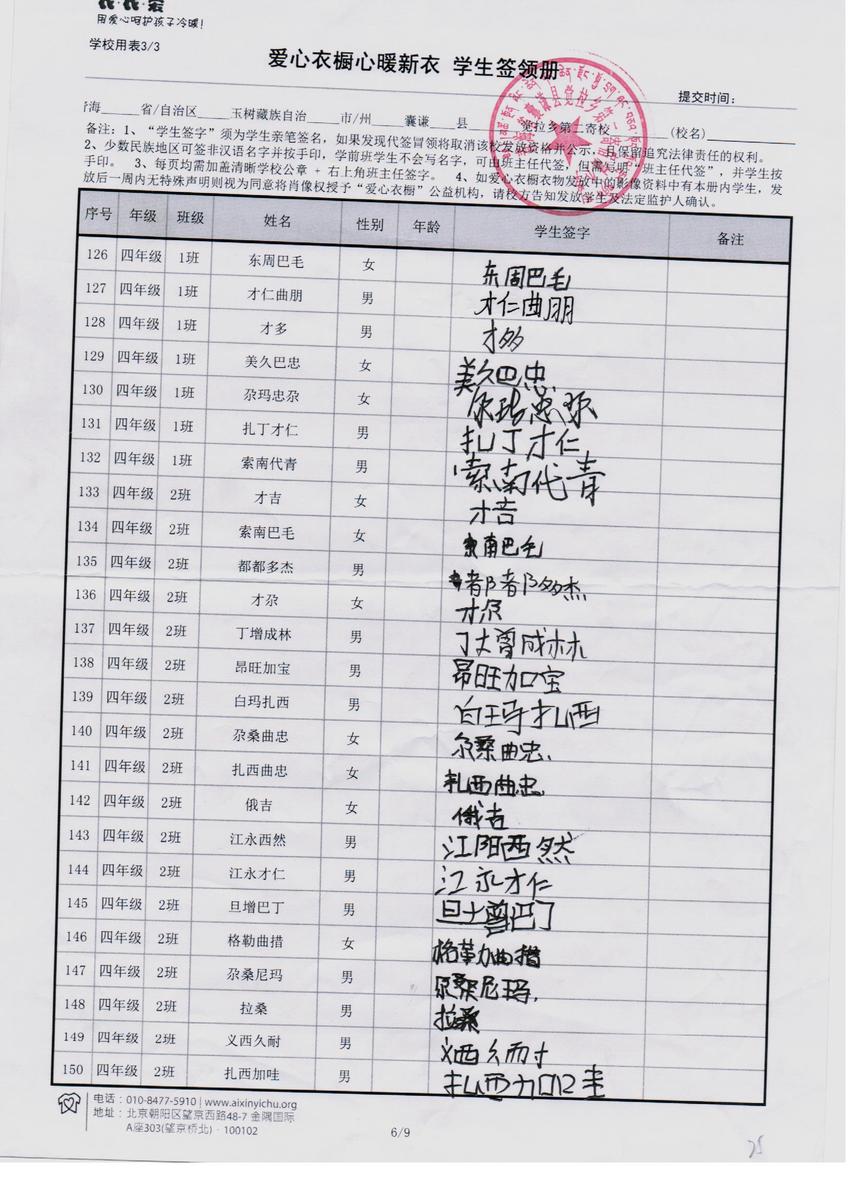 用爱心呵护孩子冷暖!
学校用表3/3
爱心衣橱心暖新衣 学生签领册
提交时间:
海_____省/自治区_____玉树藏族自治_____市/州_____囊谦_____县_____觉拉乡第二寄校_____(校名)_____
备注: 1、“学生签字”须为学生亲笔签名, 如果发现代签冒领将取消该校发放资格并公示, 且保留追究法律责任的权利。
2、少数民族地区可签非汉语名字并按手印, 学前班学生不会写名字, 可由班主任代签, 但需写明“班主任代签”, 并学生按
手印。 3、每页均需加盖清晰学校公章 + 右上角班主任签字。 4、如爱心衣橱衣物发放中的影像资料中有本册内学生, 发
放后一周内无特殊声明则视为同意将肖像权授予“爱心衣橱”公益机构, 请校方告知发放学生及法定监护人确认。
序号 年级 班级 姓名 性别 年龄 学生签字 备注
126 四年级 1班 东周巴毛 女 东周巴毛
127 四年级 1班 才仁曲朋 男 才仁曲朋
128 四年级 1班 才多 男 才多
129 四年级 1班 美久巴忠 女 美久巴忠.
130 四年级 1班 尕玛忠尕 女 尕玛忠尕
131 四年级 1班 扎丁才仁 男 扎丁才仁
132 四年级 1班 索南代青 男 索南代青
133 四年级 2班 才吉 女 才吉
134 四年级 2班 索南巴毛 女 索南巴毛
135 四年级 2班 都都多杰 男 都都多杰
136 四年级 2班 才尕 女 才尕
137 四年级 2班 丁增成林 男 丁增成林
138 四年级 2班 昂旺加宝 男 昂旺加宝
139 四年级 2班 白玛扎西 男 白玛扎西
140 四年级 2班 尕桑曲忠 女 尕桑曲忠.
141 四年级 2班 扎西曲忠 女 扎西曲忠.
142 四年级 2班 俄吉 女 俄吉
143 四年级 2班 江永西然 男 江阳西然
144 四年级 2班 江永才仁 男 江永才仁
145 四年级 2班 旦增巴丁 男 旦增巴丁
146 四年级 2班 格勒曲措 女 格勒曲措
147 四年级 2班 尕桑尼玛 男 尕桑尼玛.
148 四年级 2班 拉桑 男 拉桑
149 四年级 2班 义西久耐 男 义西久耐
150 四年级 2班 扎西加哇 男 扎西加哇
电话: 010-8477-5910 | www.aixinyichu.org
地址: 北京朝阳区望京西路48-7 金隅国际
A座303(望京桥北) · 100102
6/9